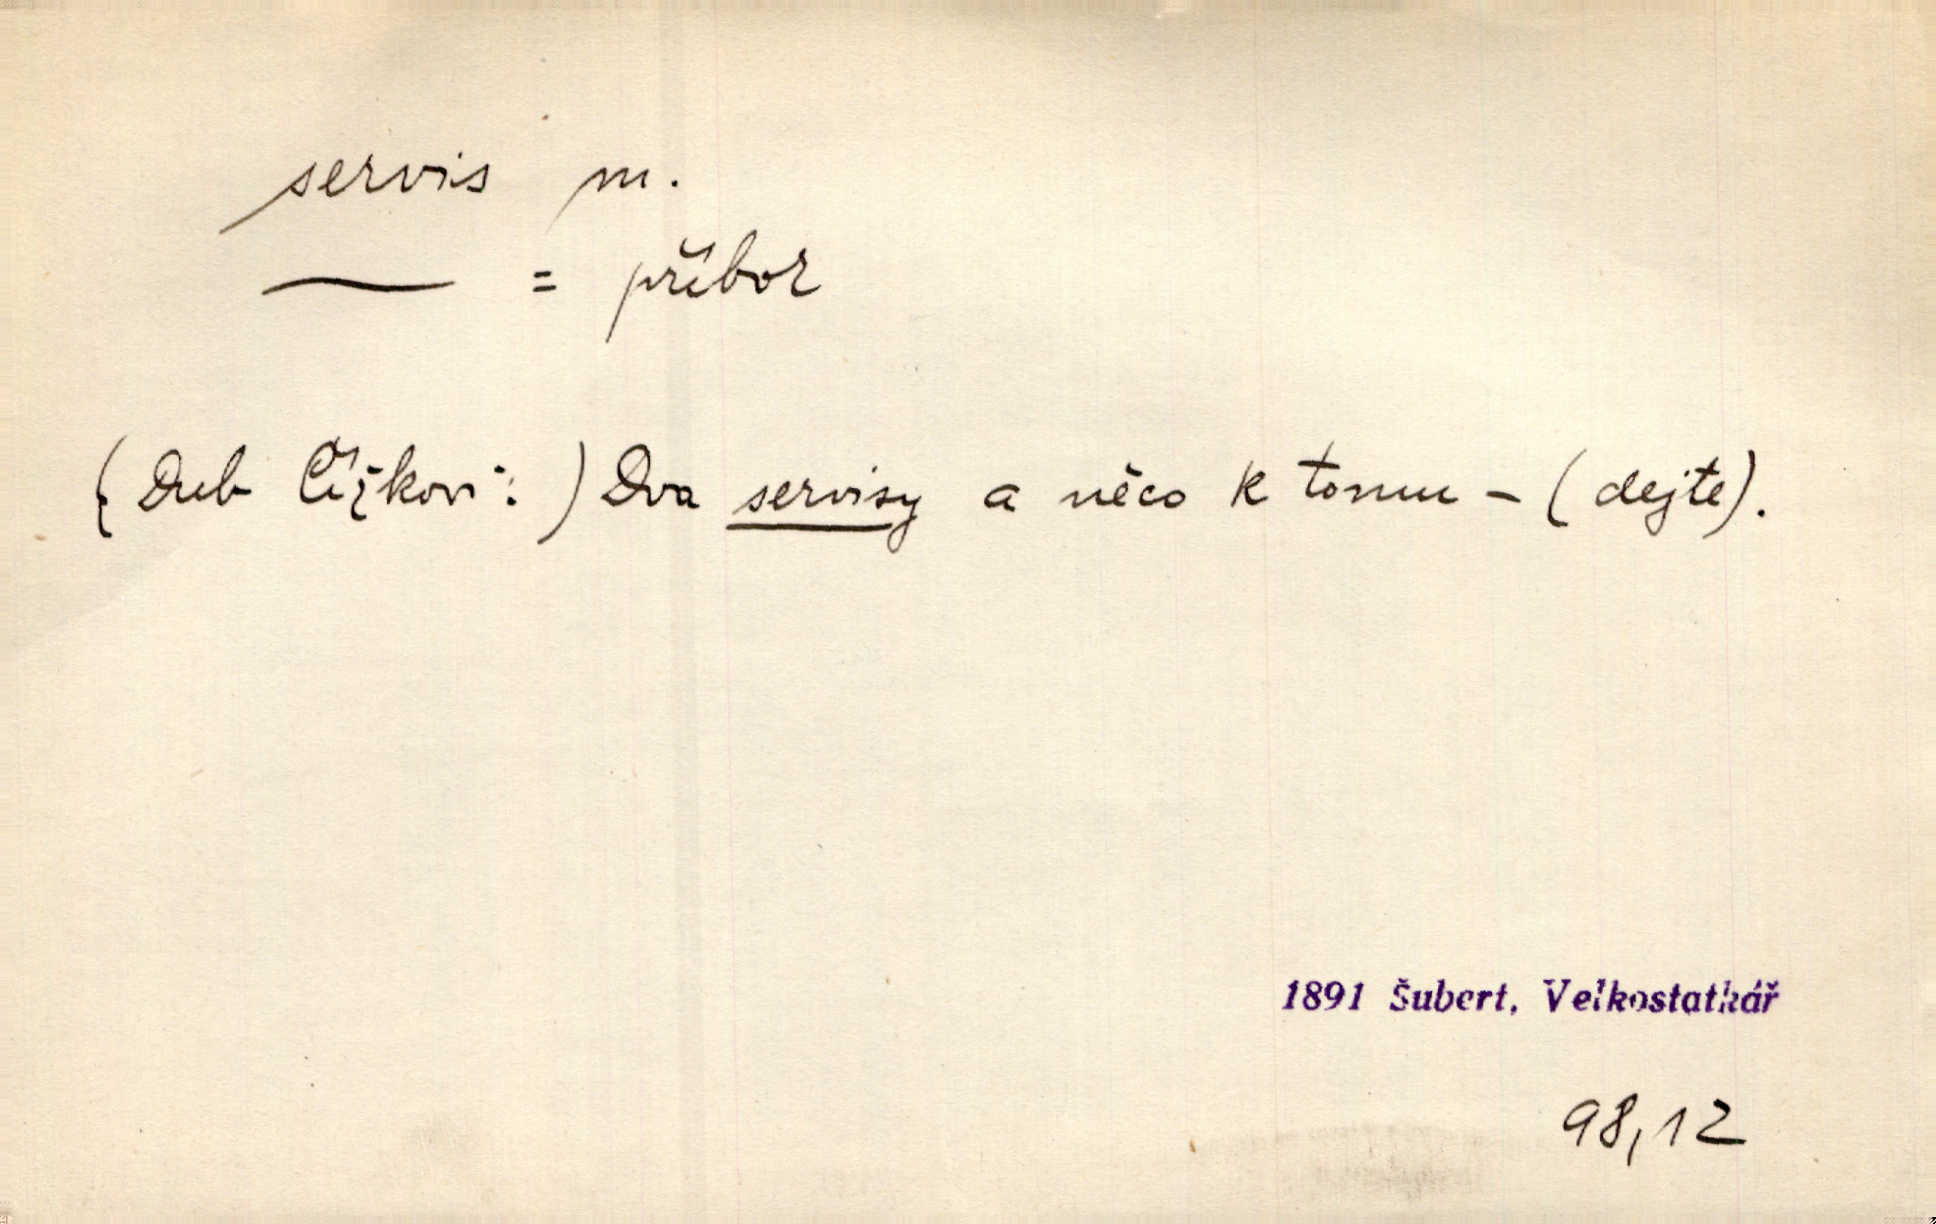 servis m.
— = příbor
(Dub Čížkovi: ) Dva servisy a něco k tomu – (dejte).
1891 Šubert, Velkostatkář
98,12